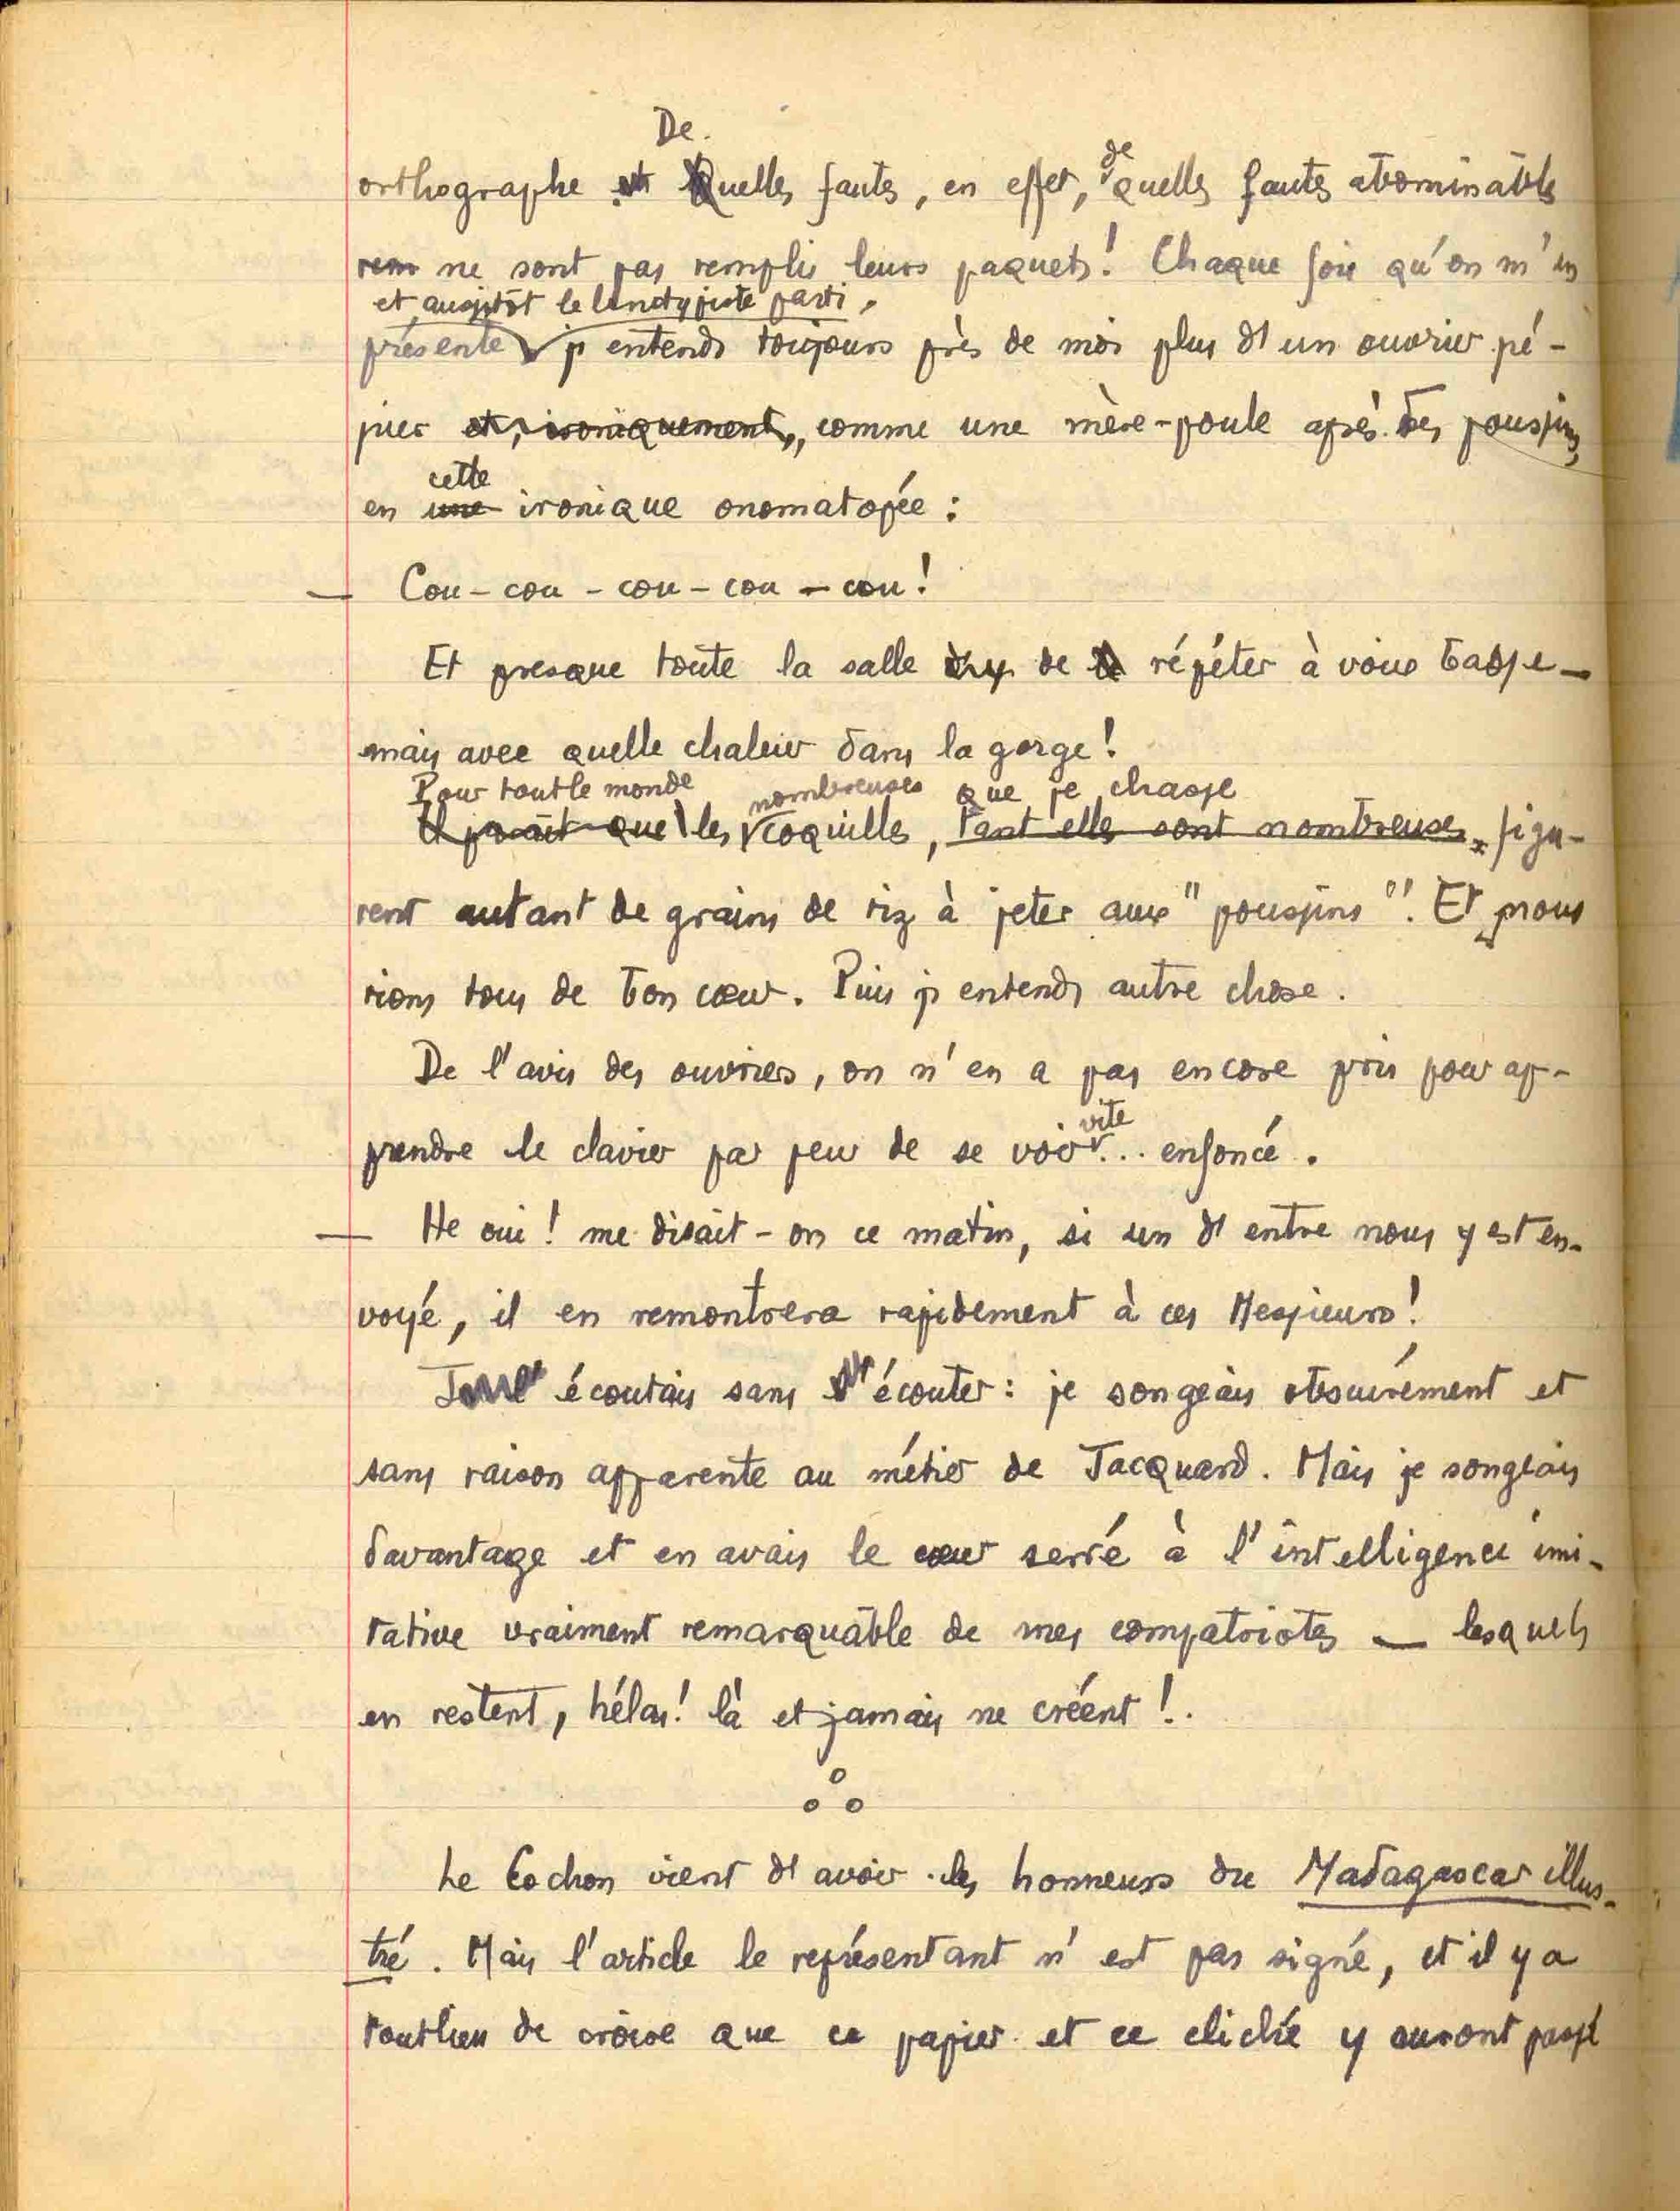 De
orthographe. et Quelles fautes, en effet, de quelles fautes abominables
rem ne sont pas remplis leurs paquets! Chaque fois qu'on m'en
et aussitôt le linotypiste parti,
présente j'entends toujours près de moi plus d'un ouvrier pé-
pier et, ironiquement, comme une mère-poule après ses poussins,
cette
en une ironique onomatopée :
— Cou-cou-cou-cou-cou!
Et presque toute la salle de répéter à voix basse —
mais avec quelle chaleur dans la gorge!
Pour tout le monde nombreuses que je chasse
Il paraît que les coquilles, tant elles sont nombreuses, figu-
rent autant de grains de riz à jeter aux "poussins". Et nous
rions tous de bon cœur. Puis j'entends autre chose.
De l'avis des ouvriers, on n'en a pas encore pris pour ap-
vite
prendre le clavier par peur de se voir... enfoncé.
— Hé oui! me disait-on ce matin, si un d'entre nous y est en-
voyé, il en remontrera rapidement à ces Messieurs!
J' écoutais sans écouter: je songeais obscurément et
sans raison apparente au métier de Jacquard. Mais je songeais
davantage et en avais le cœur serré à l'intelligence imi-
tative vraiment remarquable de mes compatriotes — lesquels
en restent, hélas! là et jamais ne créent!..
Le Cochon vient d'avoir les honneurs du Madagascar illus-
tré. Mais l'article le représentant n'est pas signé, et il y a
tout lieu de croire que ce papier et ce cliché y auront passé